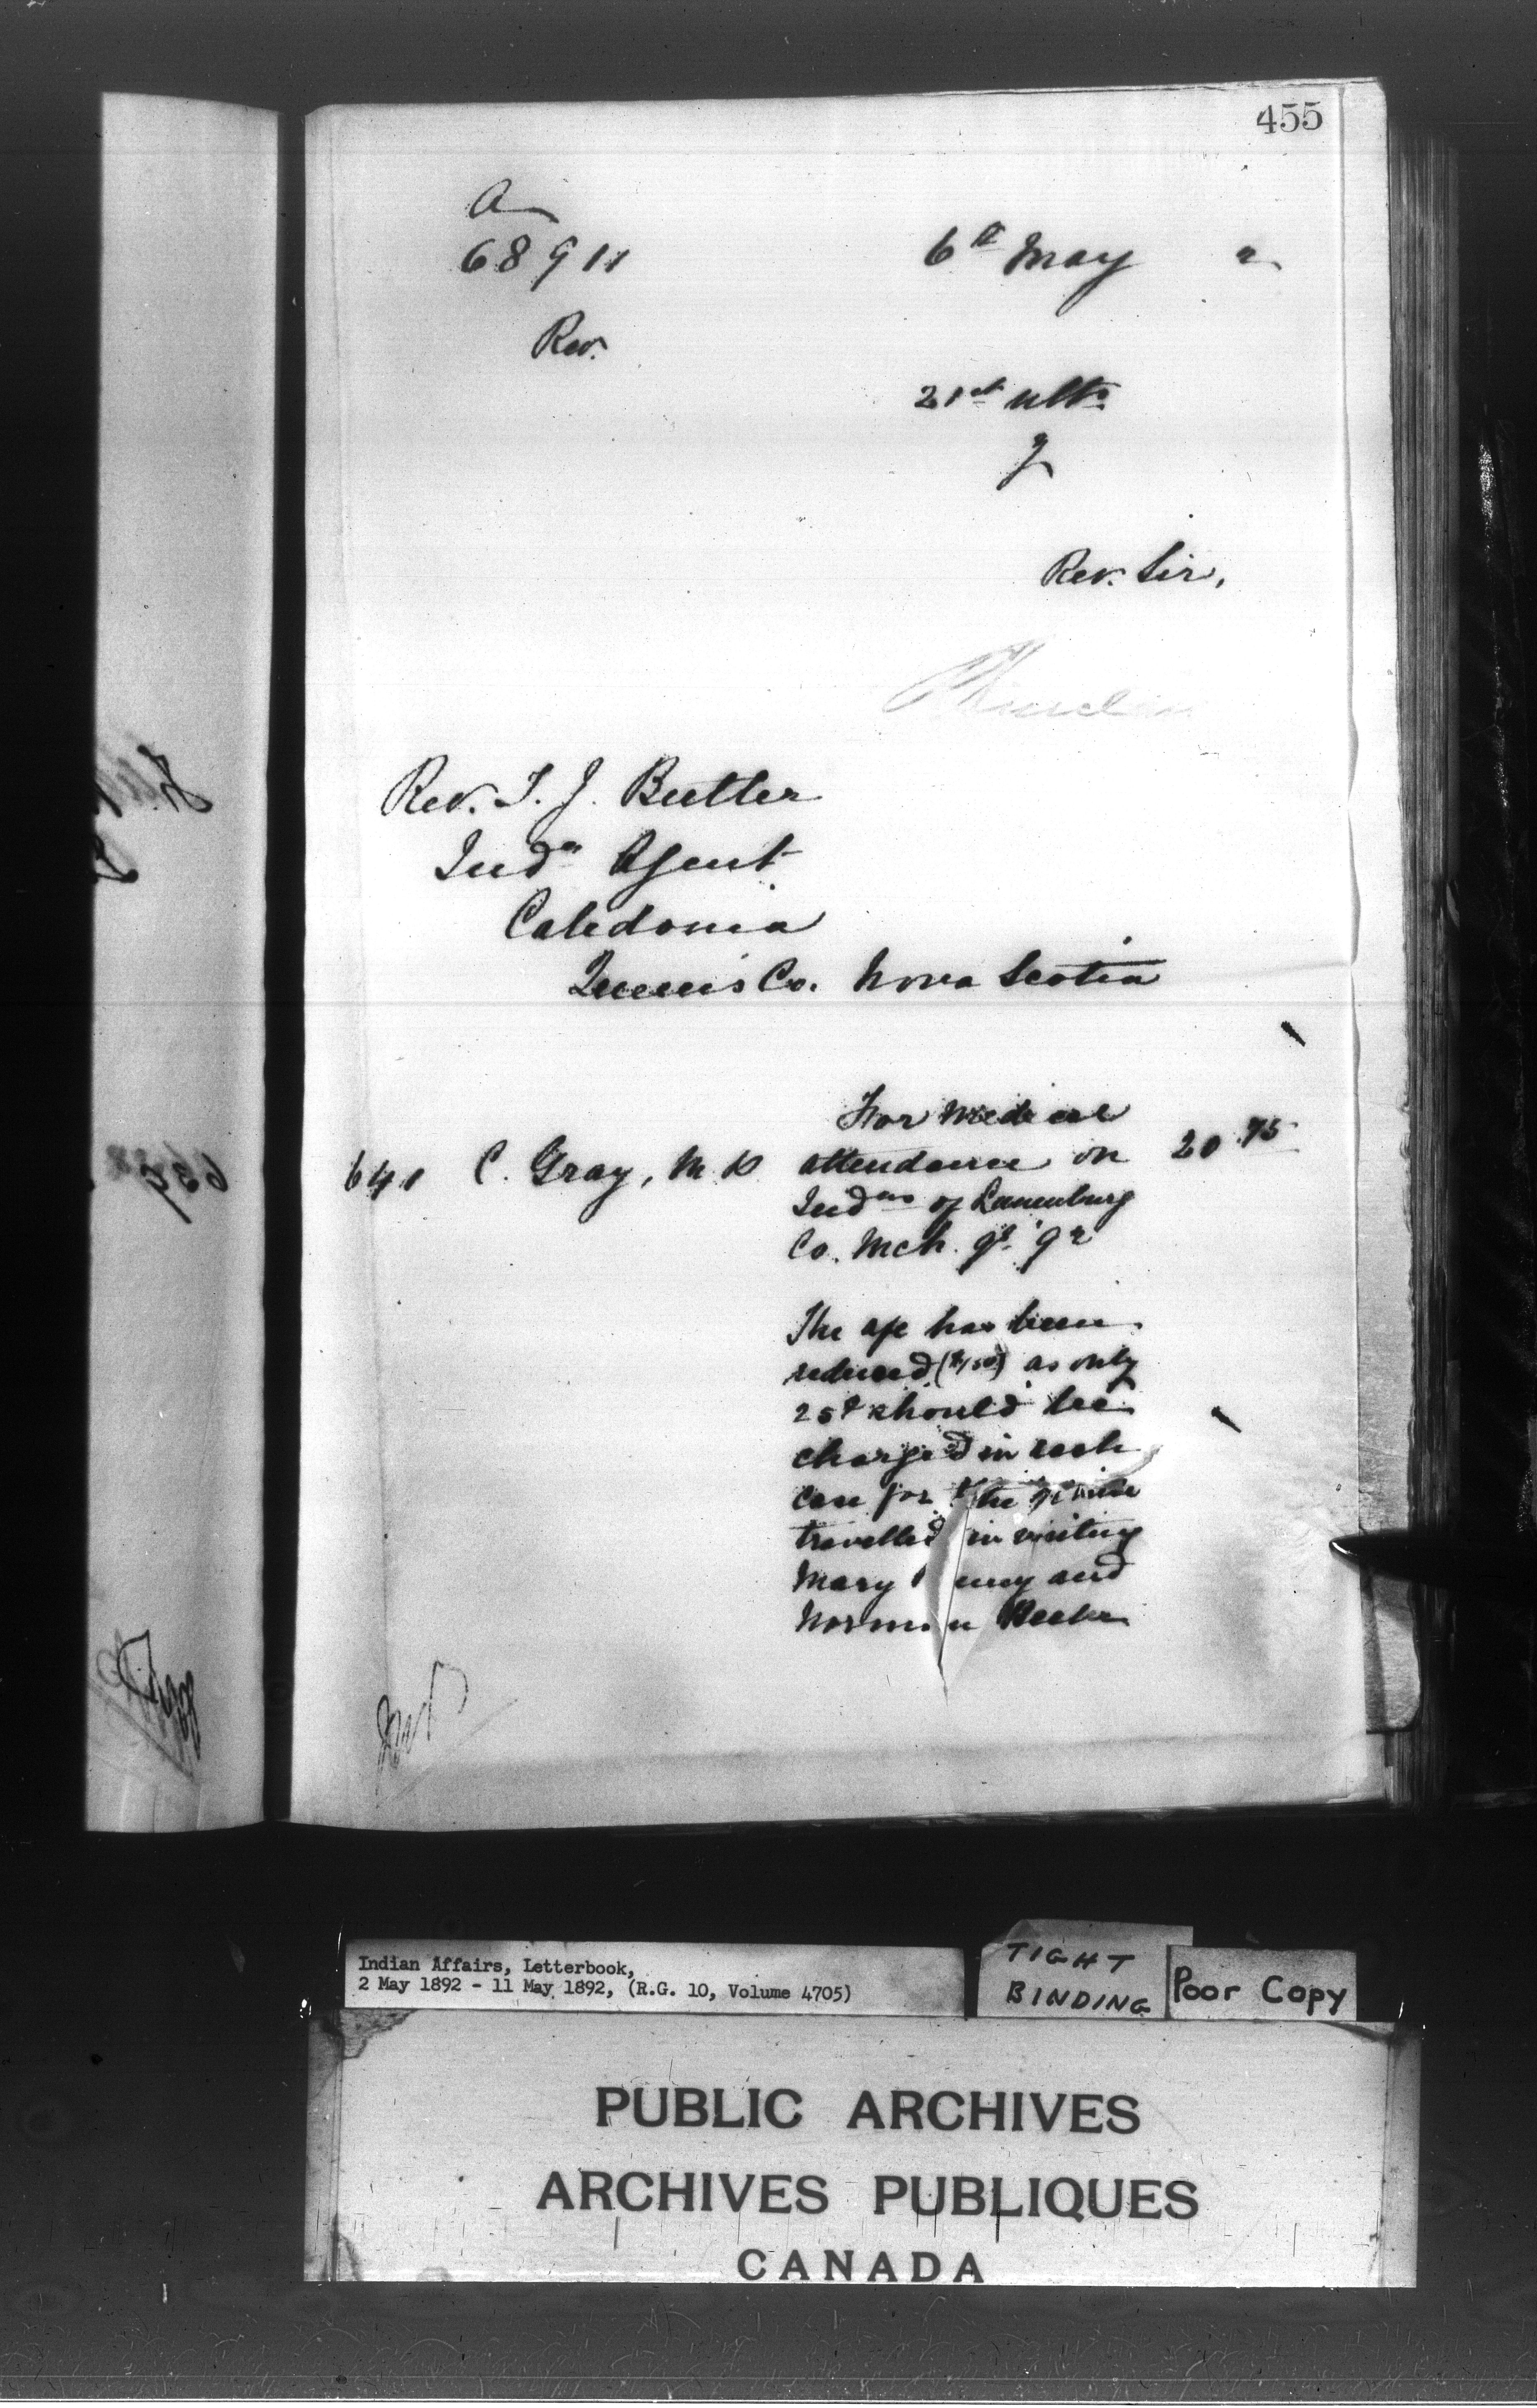 455
a
68911
6th May 2
Rev.
21st ulto
Rev. Sir,
Rev. T. J. Butler
Indn Agent
Caledonia
Queen's Co. Nova Scotia
For medical
641 C. Gray, M.D. attendance on 20.75
Indns of Lunenburg
Co. Mch. qr. '92
The a/c has been
reduced ($1.50) as only
25¢ should be
charged in each
case for the mile
travelled in visiting
Mary and
Norman
639
Indian Affairs, Letterbook,
2 May 1892 - 11 May 1892, (R.G. 10, Volume 4705)
TIGHT
BINDING
Poor Copy
PUBLIC ARCHIVES
ARCHIVES PUBLIQUES
CANADA